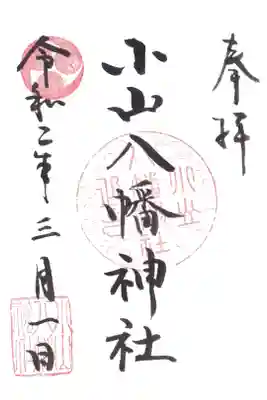 奉拝
小山八幡神社
令和二年三月一日